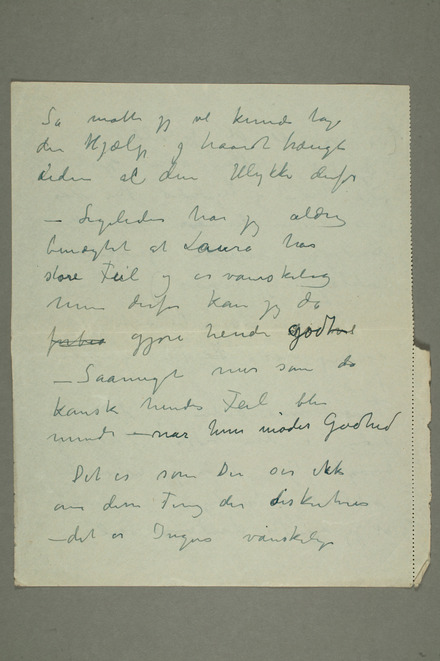 Så måtte jeg vel kunde tage
den Hjælp og haardt trængt
siden al den Ulykke derfor
– Ligeledes har jeg aldrig
benægtet at Laura har
store Feil og er vanskelig
men derfor kan jeg da
gjøre hende godt
– Saameget mer som da
kanske hendes Feil blir
mindre – når hun møder Godhed
Det er som De sier ikke
om disse Ting der diskuteres
– det er Ingers vanskelige